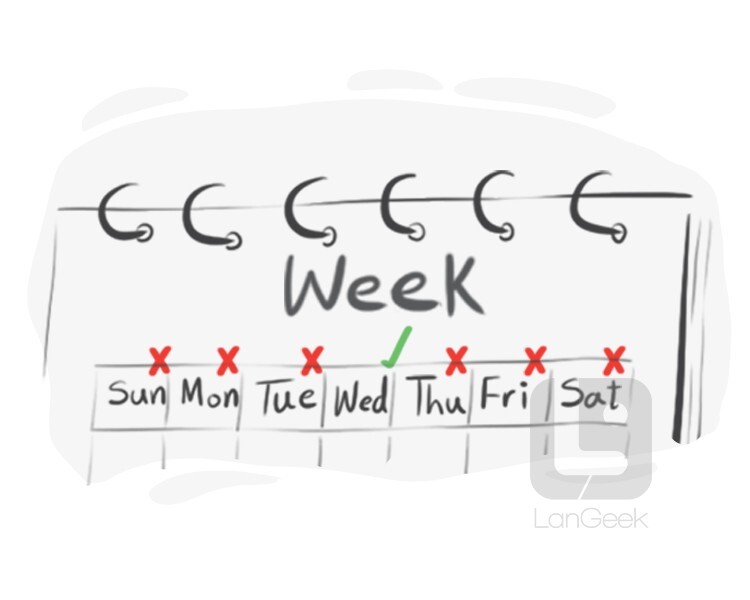 Week
Sun Mon Tue Wed Thu Fri Sat
LanGeek